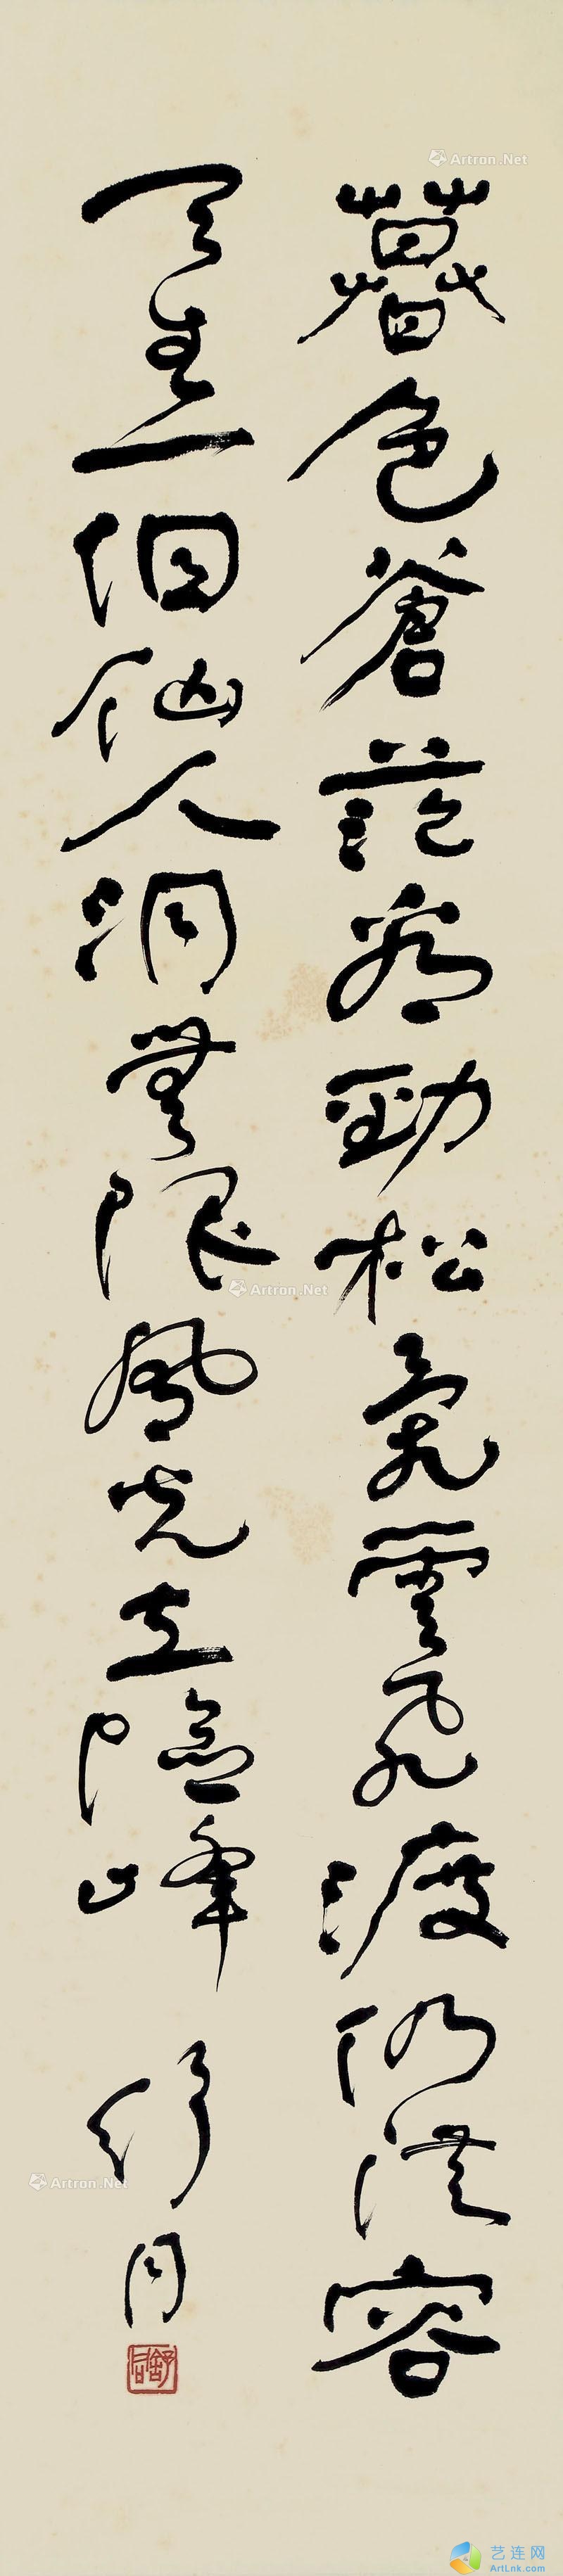 暮色蒼茫看勁松亂雲飛渡仍從容
天生一個仙人洞無限風光在險峰 舒同
舒同
Artron.Net
Artron.Net
Artron.Net
艺连网
ArtLnk.com